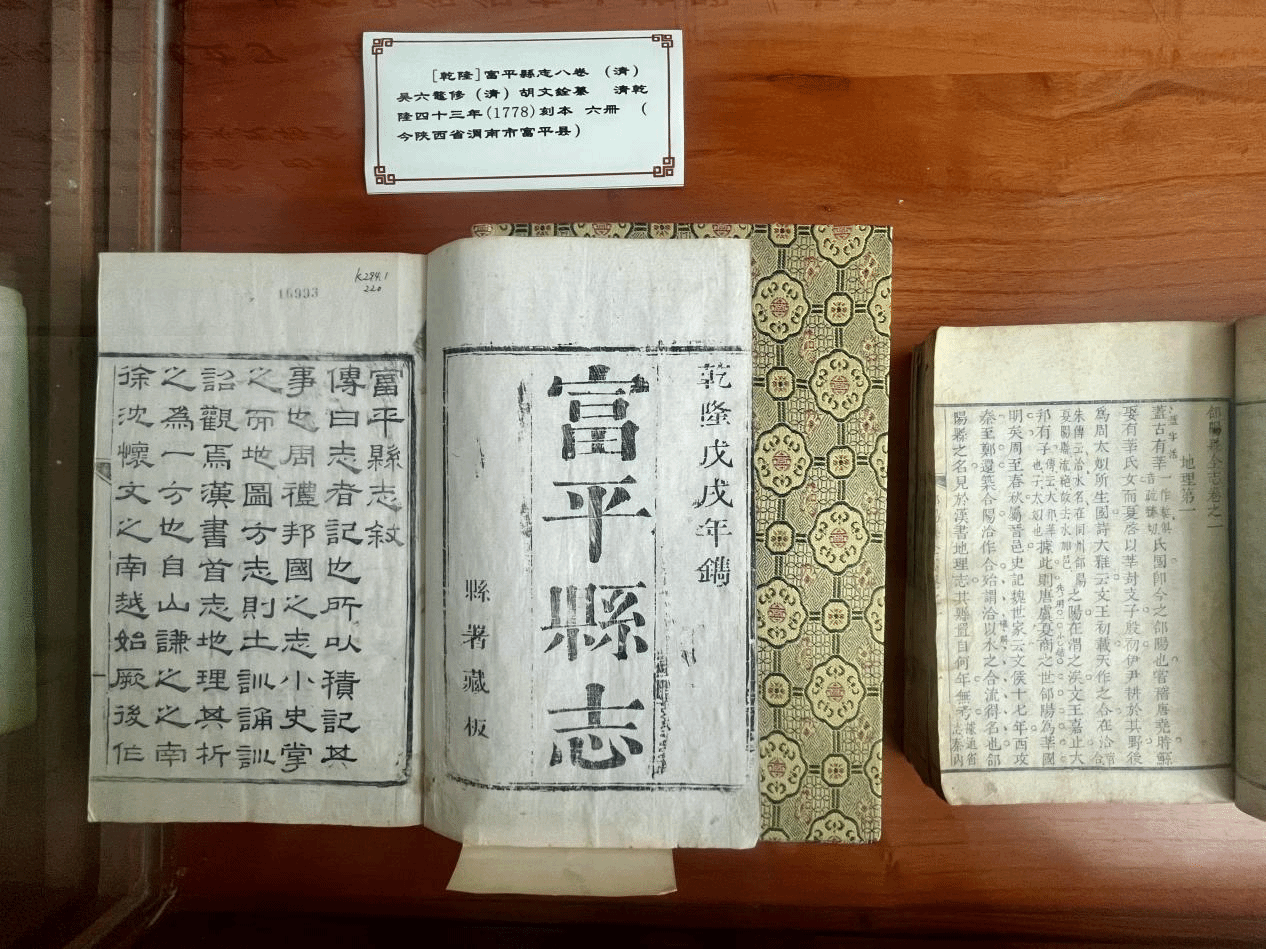 [乾隆]富平縣志八卷 (清)
吴六鼇修 (清) 胡文銓纂 清乾
隆四十三年(1778)刻本 六冊 (
今陕西省渭南市富平县)
K294.1
220
16993
乾隆戊戌年鐫
富平縣志
縣署藏板
富平縣志敘
傳曰志者記也所以積記其
事也周禮邦國之志小史掌
之而地圖方志則土訓誦訓
詔觀焉漢書首志地理其析
之為一方也自山謙之之南
徐沈懷文之南越始厥後作
郃陽縣全志卷之一
地理第一
蓋古有莘氏國卽今之郃陽也嘗稽唐堯時鯀
娶有莘氏女而夏啓以莘封支子殷初伊尹耕於其野後
爲周太姒所生國詩大雅云文王初載天作之合在洽
朱傳云洽水名在同州郃陽
夏陽縣流絶故去水加邑
之陽在渭之涘文王嘉止大
邦有子據此則唐虞夏商之世郃陽爲莘國
明矣周至春秋屬晉邑史記魏世家云文侯十七年西攻
秦至鄭還築合陽洽作合殆謂洽以水之合流得名也郃
陽縣之名見於漢書地理志其縣置自何年無考